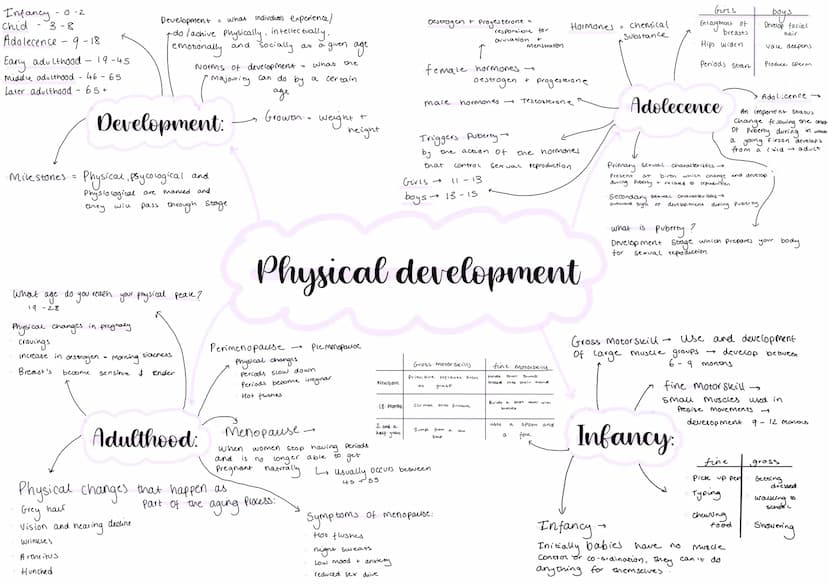 Infancy - 0-2
Chid - 3-8
Adolecence - 9-18
Early adulthood - 19-45
Middle adulthood - 46-65
Later adulthood - 65+
Development = what individuals experience/
do/achive physically, intellectually,
emotionally and socially as a given age
Norms of development = what the
majority can do by a certain
age
Development:
Growth = weight +
height
Milestones = Physical, psycological and
Physiological are marked and
they will pass through stage
Oestrogen + Progesterone =
responsible for
ovulation +
menstruation
female hormones →
oestrogen + progesterone
male hormones → Testosterone
Hormones = chemical
substance
Girls
boys
Enlargement of
breasts
Hips widen
Periods start
Develop facial
hair
voice deepens
Produce sperm
Adolecence
Adolicence →
An important status
change following the onset
of Puberty during in which
a young person develops
from a child → adult
Triggers Puberty →
by the action of the hormones
that control sexual reproduction
Girls → 11-13
boys → 13-15
Primary sexual characteristics →
Present at birth which change and develop
during Puberty + related to reproduction
Secondary sexual characteristics →
outward sign of development during Puberty
what is Puberty?
Development stage which prepares your body
for sexual reproduction
Physical development
What age do you reach your physical peak?
19-28
Physical changes in pregnacy
cravings
increase in oestrogen = morning sickness
Breast's become sensitive & tender
Perimenopause → Pre menopause
Physical changes
Periods slow down
Periods become irregular
Hot flushes
Adulthood:
Menopause →
When women stop having periods
and is no longer able to get
Pregnant naturally
↳ usually occurs between
45-55
Physical changes that happen as
Part of the aging Process:
Grey hair
Vision and hearing decline
Wrinkles
Arthritus
Hunched
Symptoms of menopause:
Hot flushes
night sweats
Low mood + anxiety
reduced sex drive
Gross motorskills
fine motorskills
Newborn
Primitive reflexes such
as grasp
18 months
2 and a
half years
Jump from a low
step
use a spoon and
a fork
Gross Motor skill → Use and development
of large muscle groups → develop between
6-9 months
fine Motor skill →
small muscles used in
Precise movements →
development 9-12 months
Infancy:
fine
gross
Pick up pen
Typing
chewing
food
Getting
dressed
walking to
school
Showering
Infancy →
Initially babies have no muscle
control or co-ordination, they can't do
anything for themselves.